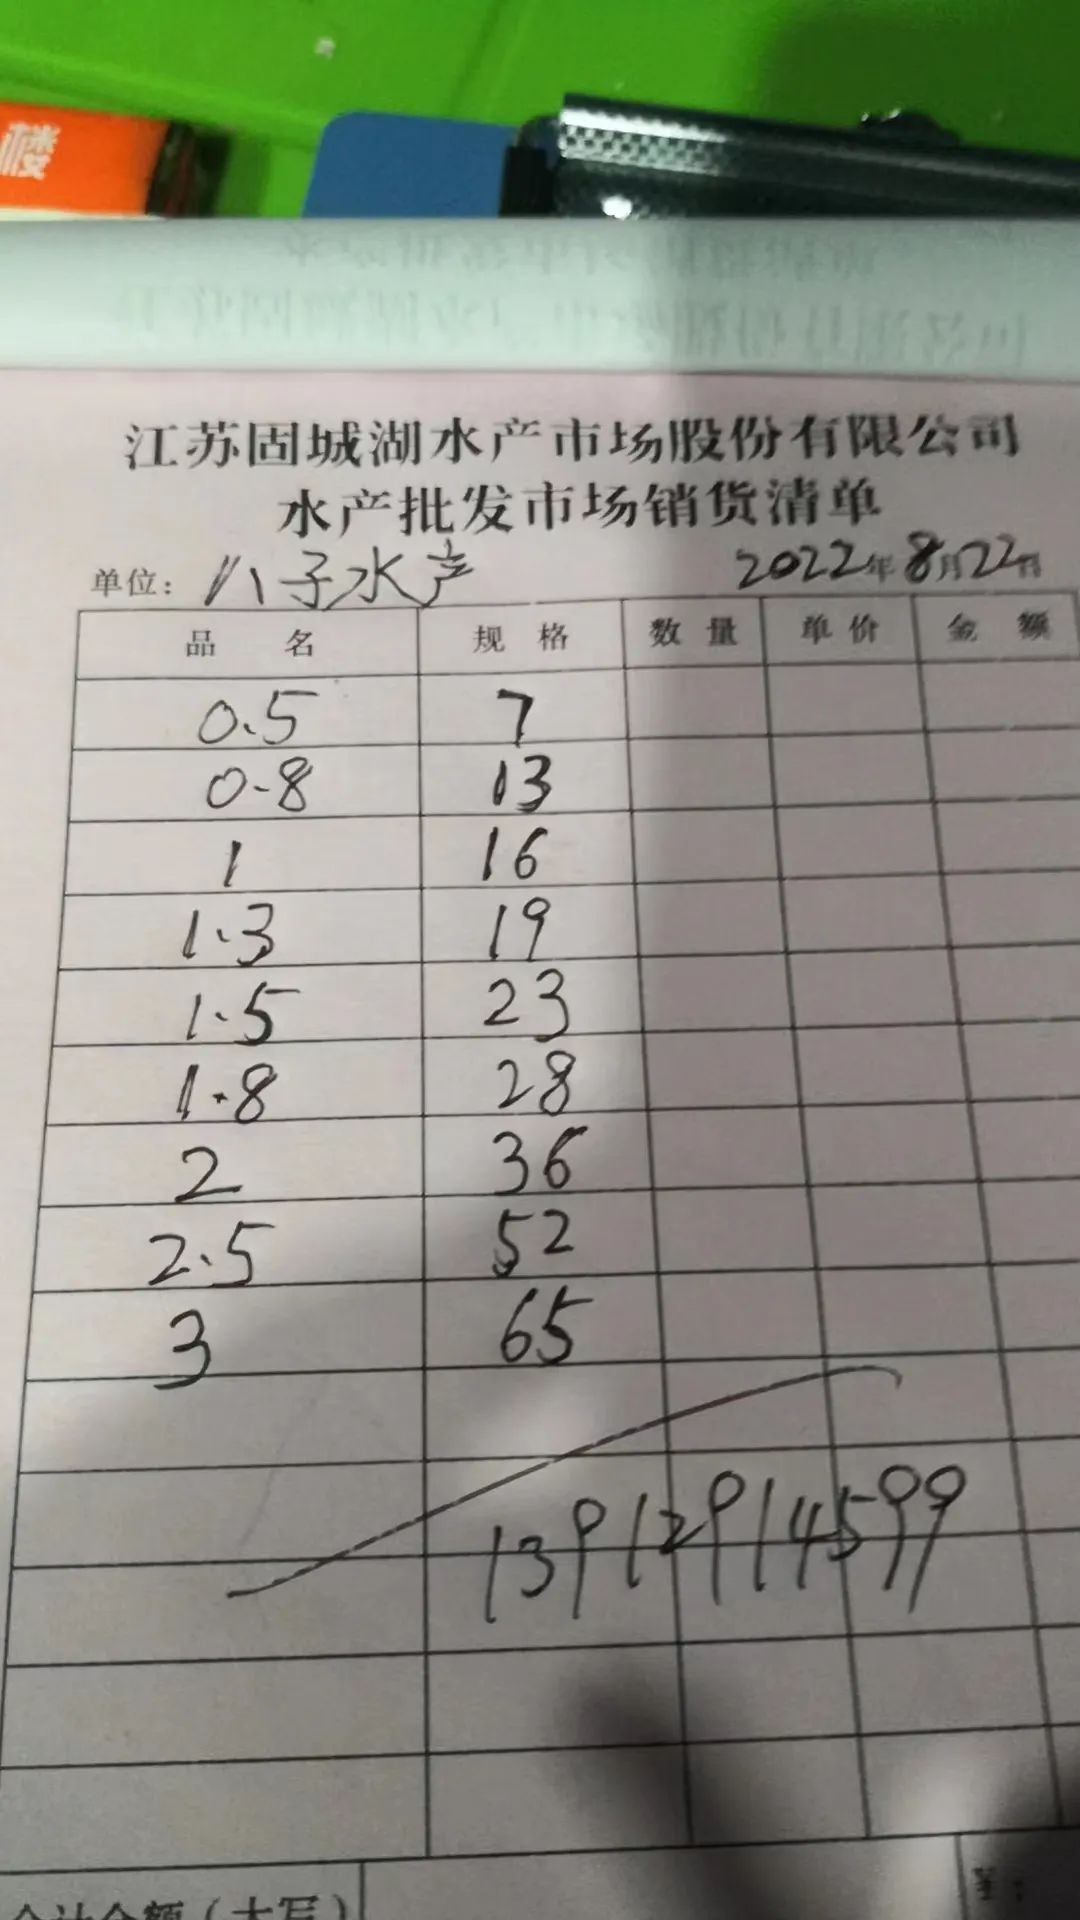 楼
江苏固城湖水产市场股份有限公司
水产批发市场销货清单
单位：八子水产 2022年8月22日
品名 规格 数量 单价 金额
0.5 7
0.8 13
1 16
1.3 19
1.5 23
1.8 28
2 36
2.5 52
3 65
13912914599
合计金额（大写）